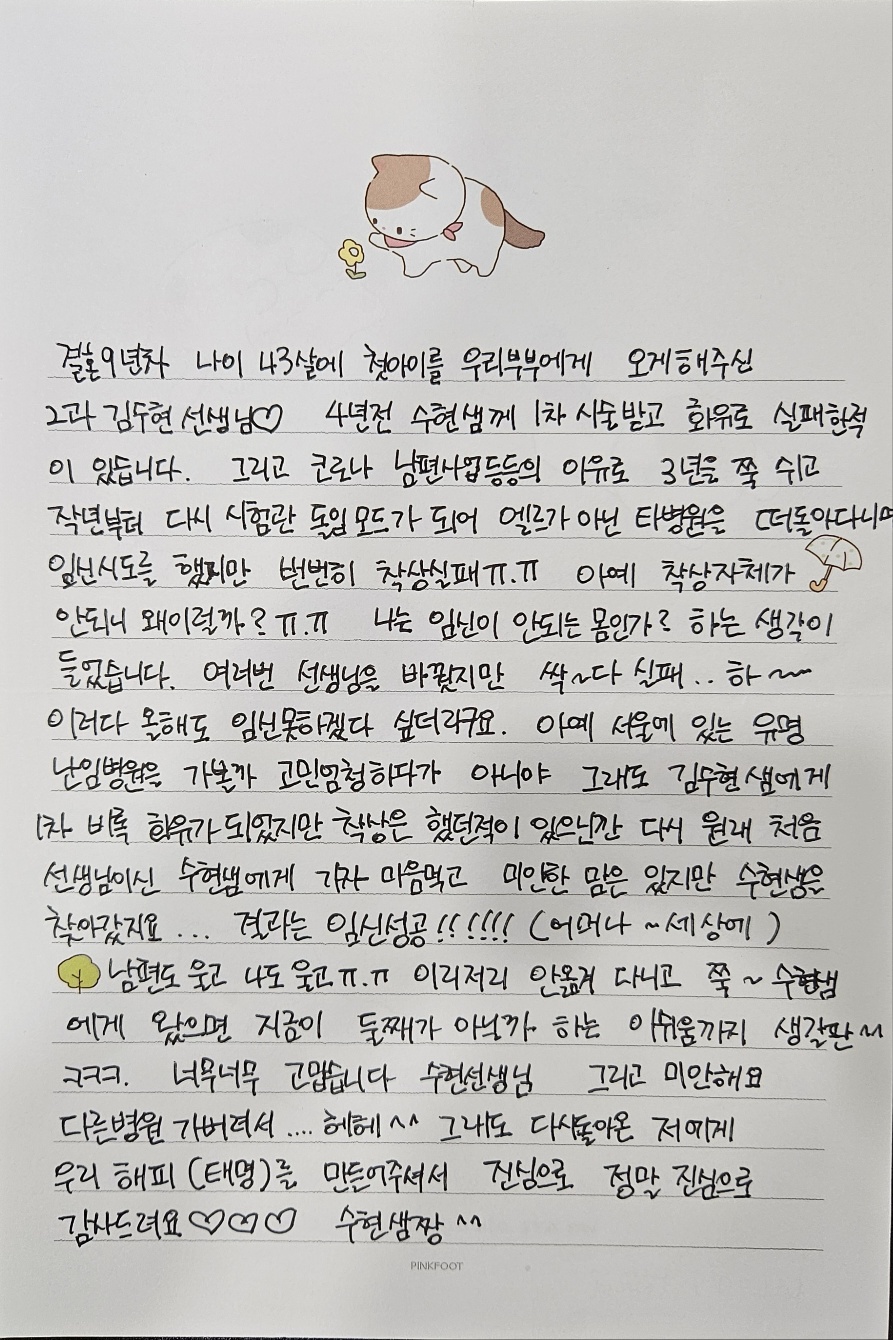 결혼9년차 나이 43살에 첫아이를 우리부부에게 오게해주신
2과 김수현 선생님♡ 4년전 수현샘께 1차 시술받고 화유로 실패한적
이 있습니다. 그리고 코로나 남편사업등등의 이유로 3년을 쭉 쉬고
작년부터 다시 시험관 돌입모드가 되어 엘르가 아닌 타병원을 떠돌아다니며
임신시도를 했지만 번번히 착상실패ㅠ.ㅠ 아예 착상자체가
안되니 왜이럴까? ㅠ.ㅠ 나는 임신이 안되는 몸인가? 하는 생각이
들었습니다. 여러번 선생님을 바꿨지만 싹~다 실패.. 하~~
이러다 올해도 임신못하겠다 싶더라구요. 아예 서울에 있는 유명
난임병원을 가볼까 고민엄청하다가 아니야 그래도 김수현샘에게
1차 비록 화유가 되었지만 착상은 했던적이 있으닌깐 다시 원래 처음
선생님이신 수현샘에게 가자 마음먹고 미안한 맘은 있지만 수현샘을
찾아갔지요 ... 결과는 임신성공!!!!!! (어머나 ~세상에)
남편도 울고 나도 울고ㅠ.ㅠ 이리저리 안옮겨 다니고 쭉~ 수현샘
에게 왔으면 지금이 둘째가 아닐까 하는 아쉬움까지 ^^
ㅋㅋㅋ. 너무너무 고맙습니다 수현선생님 그리고 미안해요
다른병원 가버려서 .... 헤헤^^ 그래도 다시돌아온 저에게
우리 해피(태명)를 만들어주셔서 진심으로 정말 진심으로
감사드려요♡♡♡ 수현샘짱^^
PINKFOOT